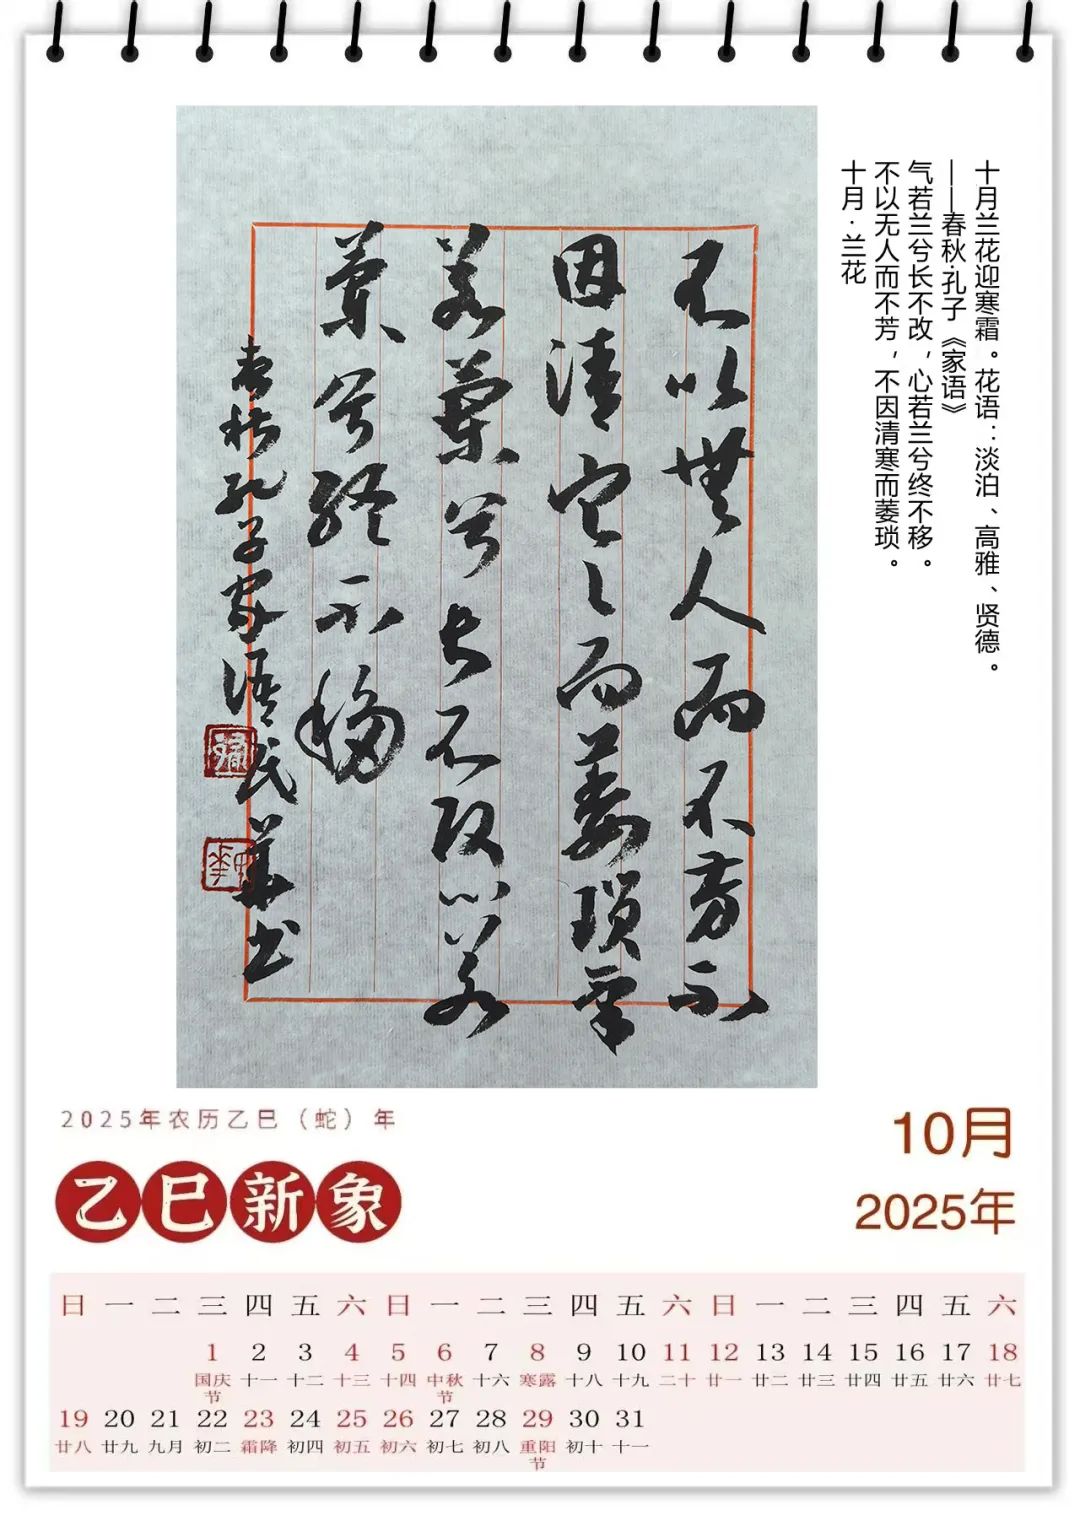 十月兰花迎寒霜。花语：淡泊、高雅、贤德。
——春秋·孔子《家语》
气若兰兮长不改，心若兰兮终不移。
不以无人而不芳，不因清寒而萎琐。
十月·兰花
不以無人而不芳不
因清寒而萎瑣氣
若蘭兮長不改心若
蘭兮終不移
春秋孔子家語民華書
2025年农历乙巳（蛇）年
乙巳新象
10月
2025年
日 一 二 三 四 五 六 日 一 二 三 四 五 六 日 一 二 三 四 五 六
1 2 3 4 5 6 7 8 9 10 11 12 13 14 15 16 17 18
国庆节 十一 十二 十三 十四 中秋节 十六 寒露 十八 十九 二十 廿一 廿二 廿三 廿四 廿五 廿六 廿七
19 20 21 22 23 24 25 26 27 28 29 30 31
廿八 廿九 九月 初二 霜降 初四 初五 初六 初七 初八 重阳节 初十 十一